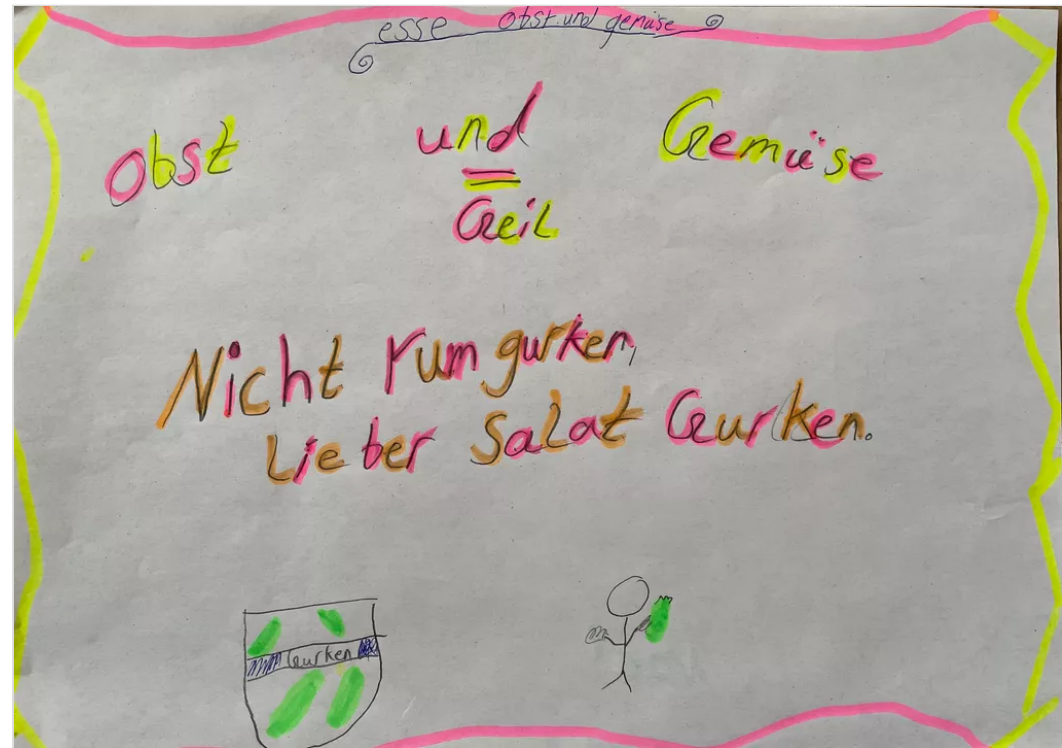 esse obst und gemüse
Obst und Gemüse
Geil
Nicht rum gurken,
Lieber Salat Gurken.
Gurken